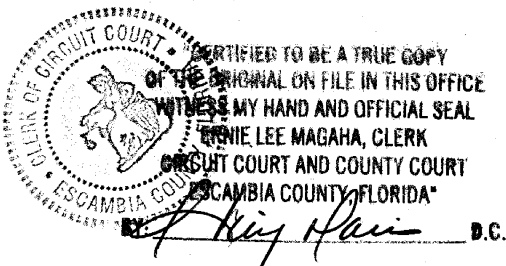 CLERK OF CIRCUIT COURT
ESCAMBIA COUNTY
"CERTIFIED TO BE A TRUE COPY
OF THE ORIGINAL ON FILE IN THIS OFFICE
WITNESS MY HAND AND OFFICIAL SEAL
ERNIE LEE MAGAHA, CLERK
CIRCUIT COURT AND COUNTY COURT
ESCAMBIA COUNTY, FLORIDA"
BY: D.C.